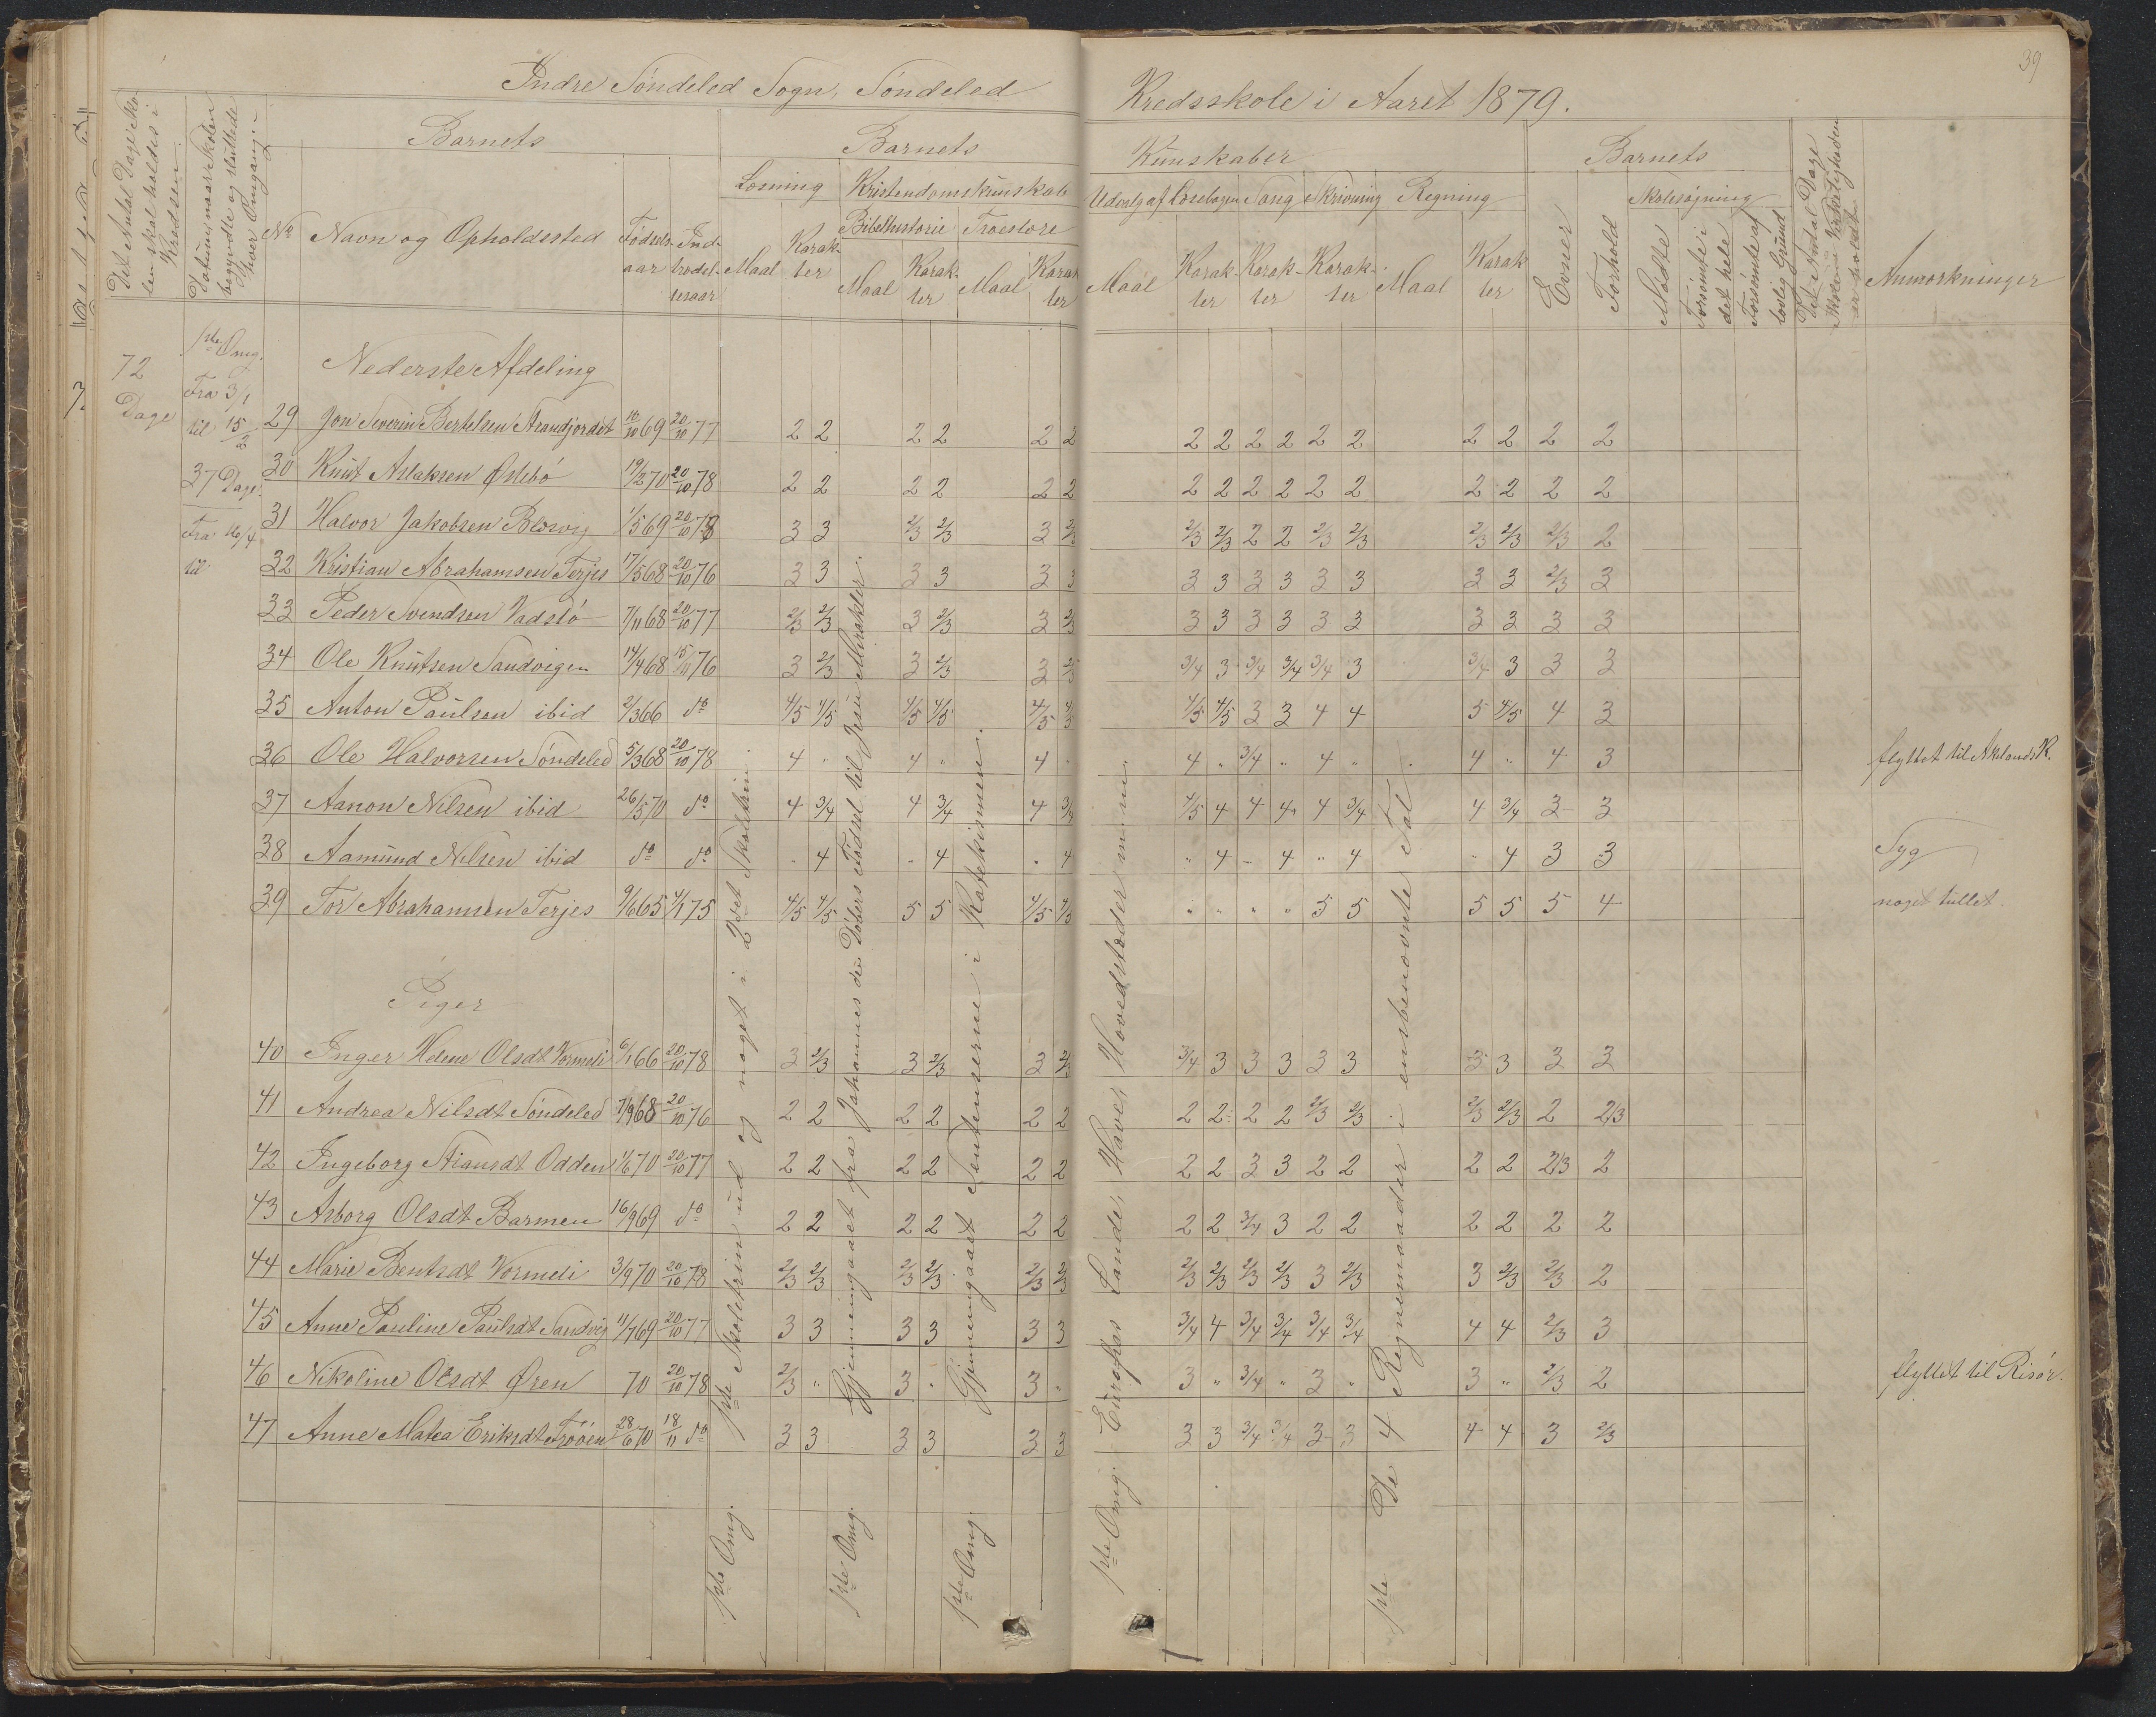 39
Indre Søndeled Sogn, Søndeled Kredsskole i Aaret 1879.
Det Antal Dage Skolen skal holdes i Kredsen
Datum naar Skolen begyndte og sluttede hver Omgang
No
Barnets
Navn og Opholdssted
Fødselsaar
Indtrædelsesaar
Barnets Kunskaber
Læsning
Maal
Karakter
Kristendomskunskab
Bibelhistorie
Maal
Karakter
Troeslære
Maal
Karakter
Udvalg af Læsebogen
Maal
Karakter
Sang
Karakter
Skrivning
Karakter
Regning
Maal
Karakter
Barnets
Evner
Forhold
Skolesøgning
Mødte
Forsømte i det hele
Forsømte af lovlig Grund
Det Antal Dage Skolen i Virkeligheden er holdt
Anmærkninger
72 Dage
1ste Omg.
Fra 3/1
til 15/2
37 Dage
Fra 16/4
til
Nederste Afdeling
29 Jon Severin Bertelsen Strandjordet 10/10 69 20/10 77 2 2 2 2 2 2 2 2 2 2 2 2 2 2 2 2
30 Knut Aslaksen Østebø 19/2 70 20/10 78 2 2 2 2 2 2 2 2 2 2 2 2 2 2 2 2
31 Halvor Jakobsen 1/5 69 20/10 78 3 3 2/3 2/3 3 2/3 2/3 2/3 2 2 2/3 2/3 2/3 2/3 2/3 2
32 Kristian Abrahamsen Terjes 17/5 68 20/10 76 3 3 3 3 3 3 3 3 3 3 3 3 3 3 2/3 3
33 Peder Svendsen Vadslø 7/11 68 20/10 77 2/3 2/3 3 2/3 3 2/3 3 3 3 3 3 3 3 3 3 3
34 Ole Knutsen Sandvigen 14/4 68 15/11 76 3 2/3 3 2/3 3 2/3 3/4 3 3/4 3/4 3/4 3 3/4 3 3 3
35 Anton Paulsen ibid 2/3 66 do 4/5 4/5 4/5 4/5 4/5 4/5 4/5 4/5 3 3 4 4 5 4/5 4 3
36 Ole Halvorsen Søndeled 5/3 68 20/10 78 4 " 4 " 4 " 4 " 3/4 " 4 " 4 " 4 3 flyttet til Aklands K.
37 Aanon Nilsen ibid 26/5 70 do 4 3/4 4 3/4 4 3/4 4/5 4 4 4 4 3/4 4 3/4 3 3
38 Aamund Nilsen ibid do do " 4 " 4 " 4 " 4 " 4 " 4 " 4 3 3 Syg
39 Tor Abrahamsen Terjes 9/6 65 4/1 75 4/5 4/5 5 5 4/5 4/5 " " " " 5 5 5 5 5 4 noget tullet.
Piger
40 Inger Helene Olsdt Vormeli 6/1 66 20/10 78 3 2/3 3 2/3 3 2/3 3/4 3 3 3 3 3 3 3 3 3
41 Andrea Nilsdt Søndeled 7/9 68 20/10 76 2 2 2 2 2 2 2 2 2 2 2/3 2/3 2/3 2/3 2 2/3
42 Ingeborg Stiansdt Odden 1/6 70 20/10 77 2 2 2 2 2 2 2 2 3 3 2 2 2 2 2/3 2
43 Asborg Olsdt Barmen 16/9 69 do 2 2 2 2 2 2 2 2 3/4 3 2 2 2 2 2 2
44 Marie Bentsdt Vormeli 3/9 70 20/10 78 2/3 2/3 2/3 2/3 2/3 2/3 2/3 2/3 2/3 2/3 3 2/3 3 2/3 2/3 2
45 Anne Pauline Paulsdt Sandvig 11/7 69 20/10 77 3 3 3 3 3 3 3/4 4 3/4 3/4 3/4 3/4 4 4 2/3 3
46 Nikoline Olsdt Øren 70 20/10 78 2/3 " 3 " 3 " 3 " 3/4 " 3 " 3 " 2/3 2 flyttet til Risør.
47 Anne Matea Eriksdt 28/6 70 18/11 do 3 3 3 3 3 3 3 3 3/4 3/4 3 3 4 4 3 2/3
1ste Omg. 1ste Skoletrin ud og noget i 2det Skoletrin.
1ste Omg. Gjennemgaaet fra Johannes den Døbers Fødsel til Jesu Mirakler.
1ste Omg. Gjennemgaaet Sentenserne i Katekismen.
1ste Omg. Europas Lande, Have, Hovedstæder m.m.
1ste De 4 Regnemaader i ensbenævnte Tal